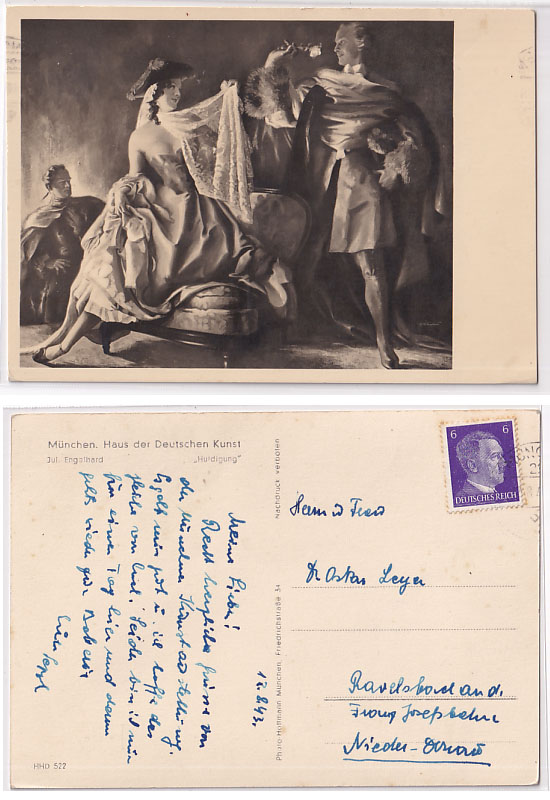 München. Haus der Deutschen Kunst
Jul. Engelhard „Huldigung"
Nachdruck verboten
Photo-Hoffmann München, Friedrichstraße 34
6 6
DEUTSCHES REICH
12.8.43.
Meine Lieben!
Recht herzliche Grüsse von
der Münchner Kunstausstellung.
Es geht mir gut u. ich hoffe das
gleiche von Euch. Leider bin ich nur
für einen Tag hier und dann
geht's wieder zur
Herrn u Frau
Dr Oskar Leyer
Ravelsbach an d.
Franz Josefsbahn
Nieder-Donau
HHD 522